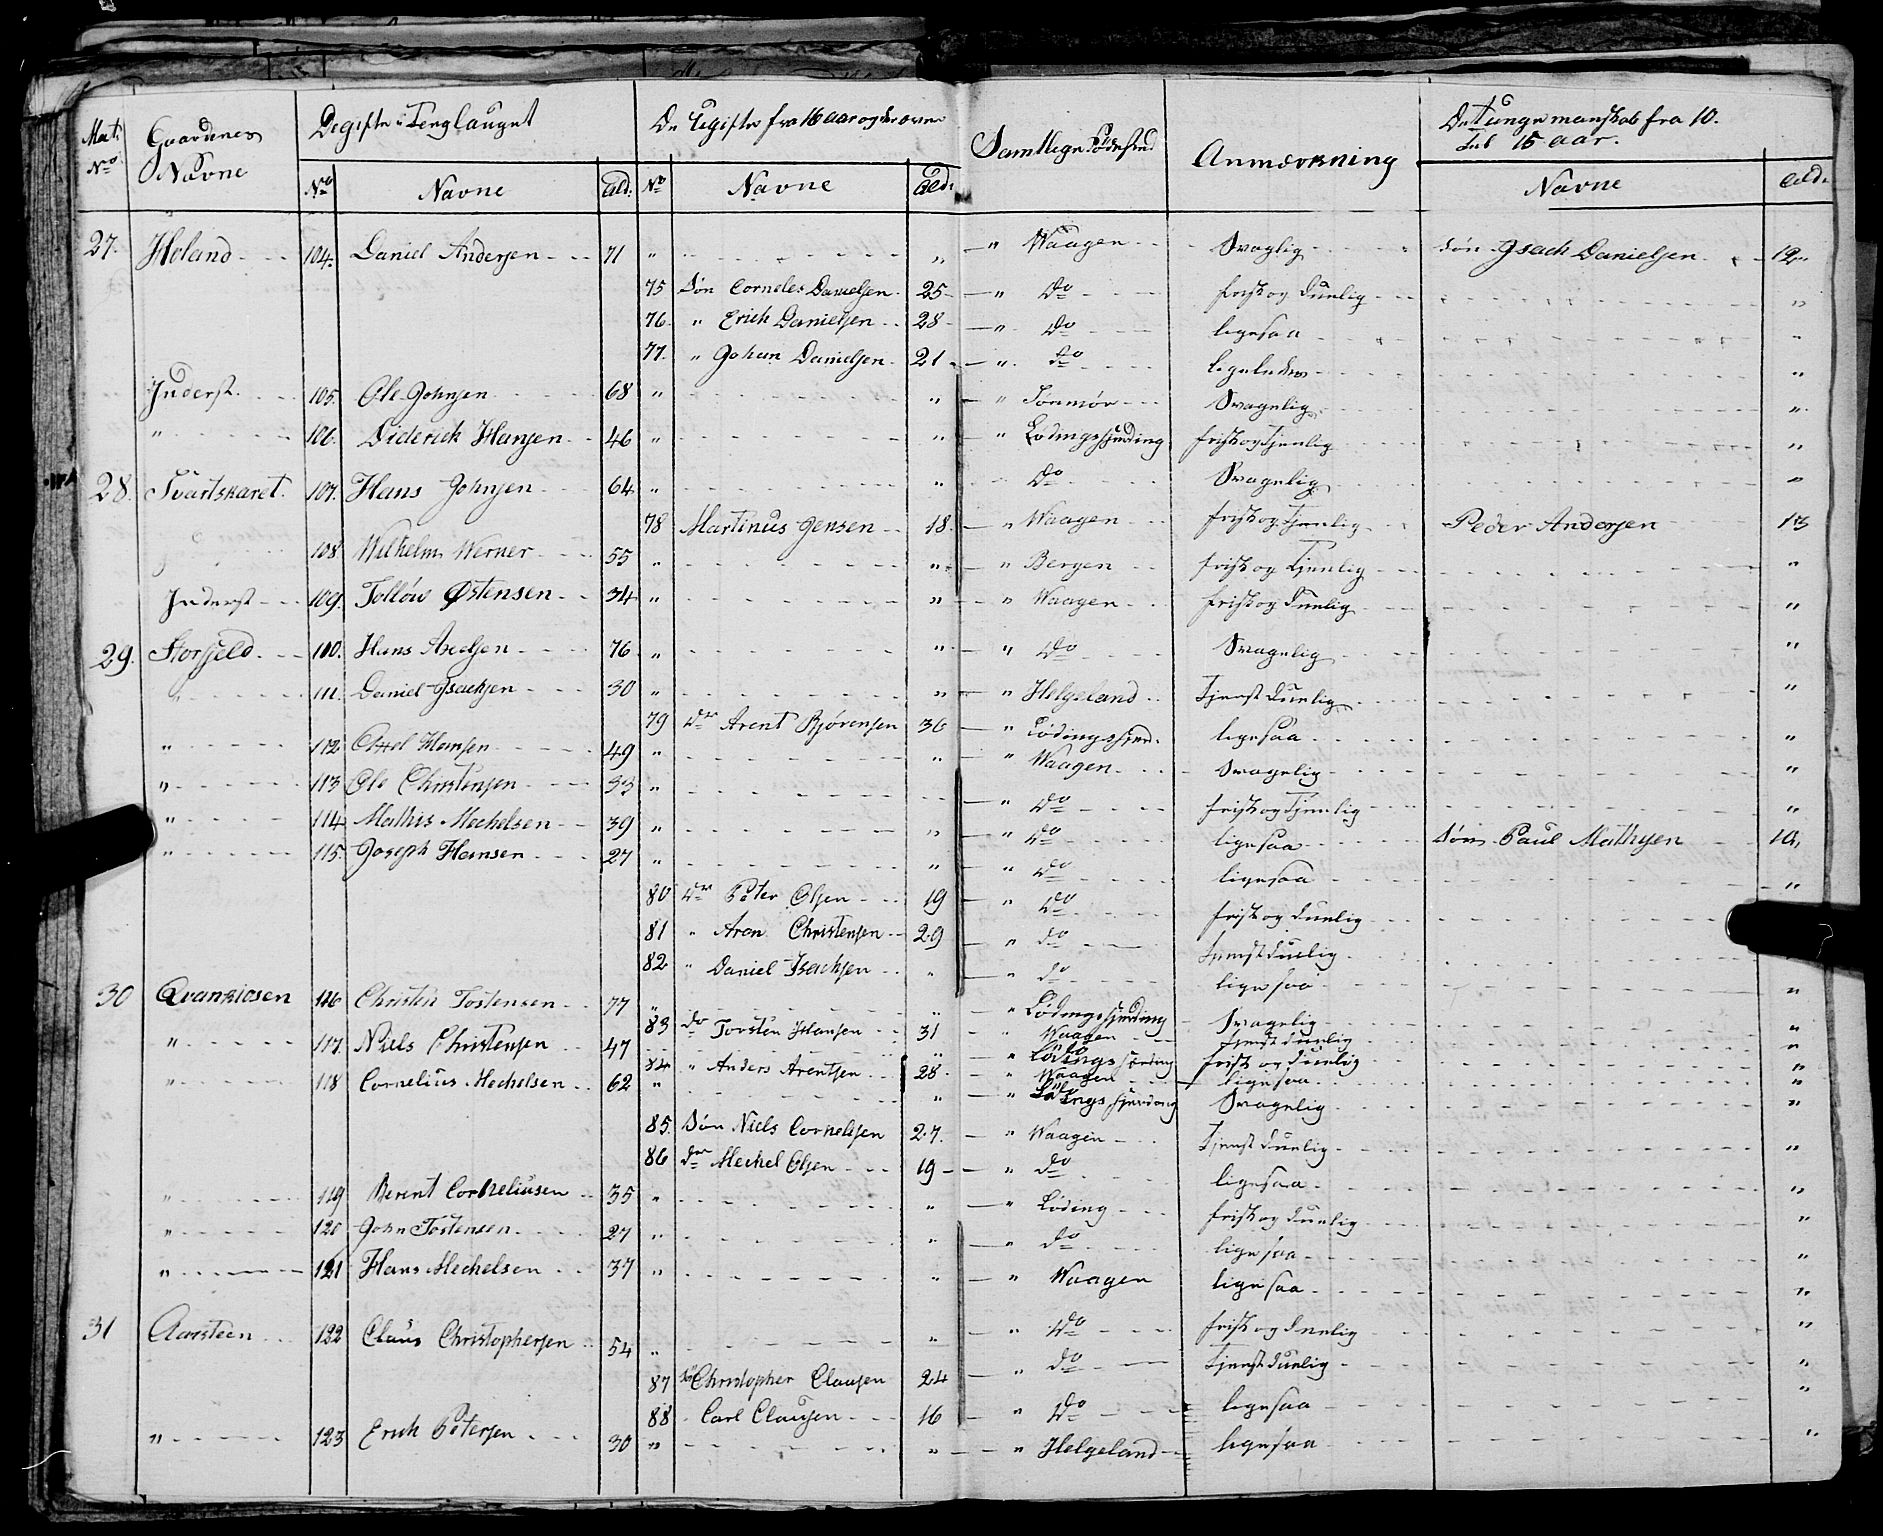 Mat: No. Gaardenes Navne De gifte i Tenglauget De Ugifte fra 16 aar og derover Samtlige Fødested Anmærkning Det unge mandskab fra 10. til 15 aar.
No. Navne Ald: No. Navne Ald: Navne Ald:
27. Holand 104. Daniel Andersen 71 " " " Waagen Svaglig Søn Isach Danielsen 12
75 Søn Corneles Danielsen 25 " Do frisk og duelig "
76. " Erich Danielsen 28 " Do ligesaa "
77. " Johan Danielsen 21 " do ligeledes "
Inderst. 105. Ole Johnsen 68 " " " Søndmør Svagelig "
" 106. Diderich Hansen 46 " " " Lødingsfjerding frisk og tjenlig "
28. Svartskaret. 107. Hans Johnsen 64 " " Do Svagelig "
78 Martinus Jensen 18 " Waagen frisk og tjenlig Peder Andersen 13
108 Wilhelm Werner 55 " " " Bergen frisk og tjenlig "
Inderst 109. Tolløv Østensen 34 " " " Waagen frisk og duelig "
29. Storfjeld. 110. Hans Axelsen 76 " " " Do Svagelig "
" 111. Daniel Isachsen 30 " " " Helgeland Tjenstduelig "
79 dr Arent Bjørensen 36 " Lødingsfjer. ligesaa "
" 112 Axel Hansen 49 " " " Waagen Svagelig "
" 113 Ole Christensen 33 " " Do frisk og tjenlig "
" 114 Mathis Mechelsen 39 " " " do ligesaa Søn Paul Mathisen 10,
" 115. Joseph Hansen 27 " " " do ligesaa "
80 dr Peter Olsen 19 " do frisk og duelig
81 " Aron Christensen 29 " do tjenstduelig "
82 " Daniel Isachsen " " do ligesaa
30 Qvankiosen 116 Christen Tostensen 77 " " " Lødingsfjerding Svagelig "
83 do Torsten Hansen 31 " Waagen tjenstduelig "
" 117. Niels Christensen 47 " " Lødingsfjerding frisk og duelig "
84 " Anders Arentsen 28 " Waagen ligesaa "
" 118 Cornelius Mechelsen 62 " " " Lødingsfjerding Svagelig "
85. Søn Niels Cornelisen 27. " Waagen Tjenstduelig "
86 dr Mechel Olsen 19 " do ligesaa
" 119 Berent Corneliusen 35 " " " Løding frisk og duelig "
" 120 John Tostensen 27 " " " do ligesaa "
" 121 Hans Mechelsen 37 " " " Waagen ligesaa "
31 Aarsteen 122 Claus Christophersen 54 " " " Do frisk og duelig "
87 Sø Christopher Clausen 24 " do Tjenstduelig "
88 Carl Clausen 16 " do ligesaa "
" 123 Erich Petersen 30 " " " Helgeland ligesaa "